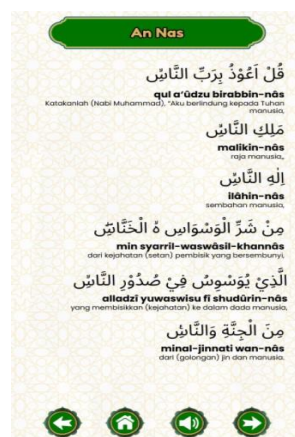 An Nas
قُلْ اَعُوْذُ بِرَبِّ النَّاسِۙ
qul a‘ûdzu birabbin-nâs
Katakanlah (Nabi Muhammad), “Aku berlindung kepada Tuhan
manusia,
مَلِكِ النَّاسِۙ
malikin-nâs
raja manusia,
اِلٰهِ النَّاسِۙ
ilâhin-nâs
sembahan manusia,
مِنْ شَرِّ الْوَسْوَاسِ ەۙ الْخَنَّاسِۖ
min syarril-waswâsil-khannâs
dari kejahatan (setan) pembisik yang bersembunyi,
الَّذِيْ يُوَسْوِسُ فِيْ صُدُوْرِ النَّاسِۙ
alladzî yuwaswisu fî shudûrin-nâs
yang membisikkan (kejahatan) ke dalam dada manusia,
مِنَ الْجِنَّةِ وَالنَّاسِ
minal-jinnati wan-nâs
dari (golongan) jin dan manusia.